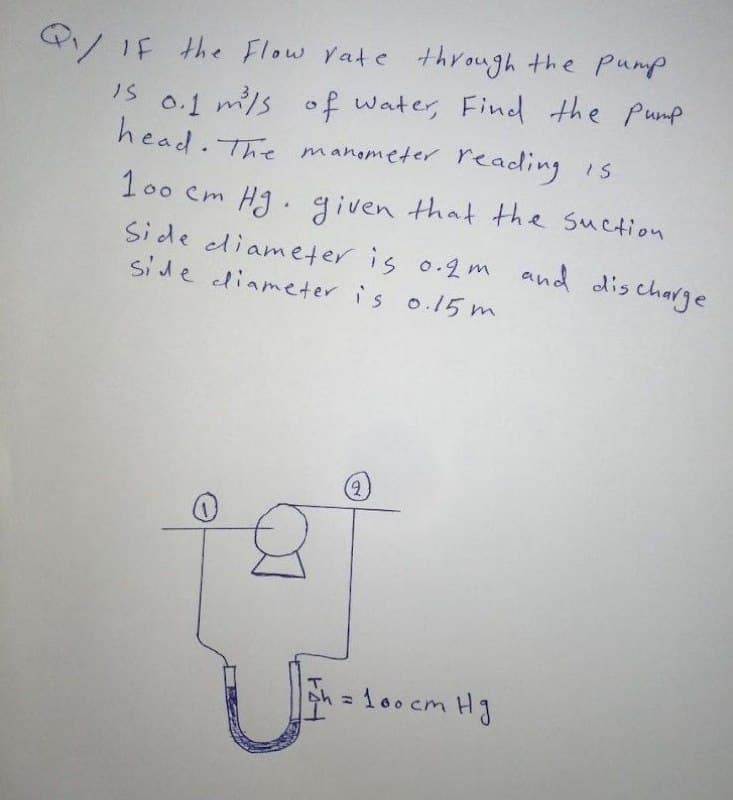 Q1/ IF the Flow rate through the pump
is 0.1 m³/s of water, Find the pump
head. The manometer reading is
100 cm Hg. given that the suction
Side diameter is 0.2 m and discharge
side diameter is 0.15 m
① ②
Δh = 100 cm Hg